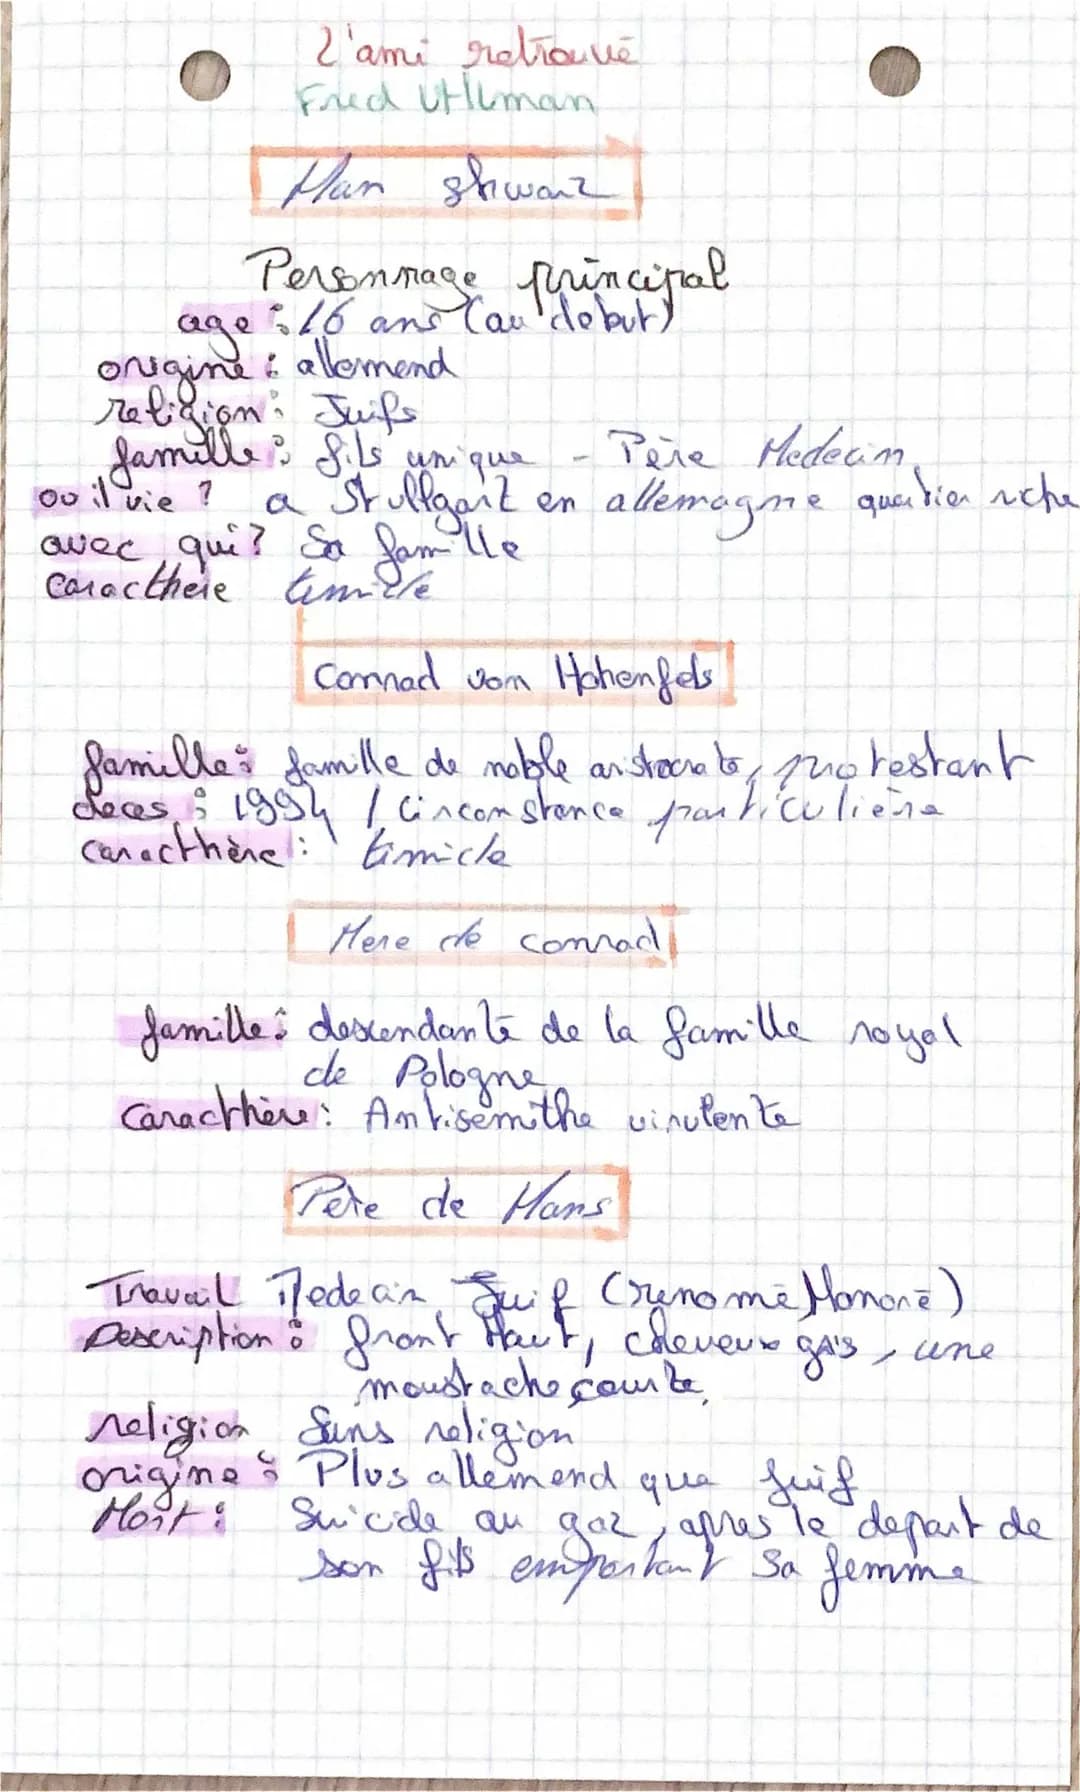 L'ami retrouvé
Fred Utllman
Han shwarz
Personnage principal
age : 16 ans (au debut)
origine : allemend
religion : Juifs
famille : fils unique - Père Medecin
ou il vie ? a Stullgart en allemagne quartier riche
avec qui ? Sa famille
caracthere timide
Conrad von Hohenfels
famille : famille de noble aristocrate, protestant
deces : 1994 / Circonstance particulière
caracthère : timide
Mere de conrad
famille : descendante de la famille royal
de Pologne
Caracthère : Antisemithe virulente
Père de Hans
Travail Medecin Juif (renomé Honoré)
Description : front Haut, cheveux gris, une
moustache courte,
religion Sans religion
origine : Plus allemend que juif
Mort : Suicide au gaz, apres le depart de
son fils emportant sa femme